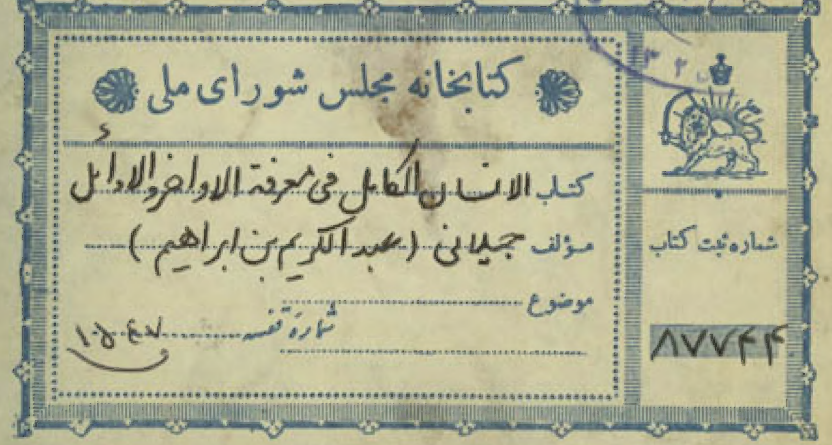 کتابخانه مجلس شورای ملی
کتاب الانسان الکامل فی معرفة الاواخر والاوائل
مؤلف جیلانی (عبدالکریم بن ابراهیم)
موضوع
شماره قفسه
شماره ثبت کتاب
۸۷۷۴۴